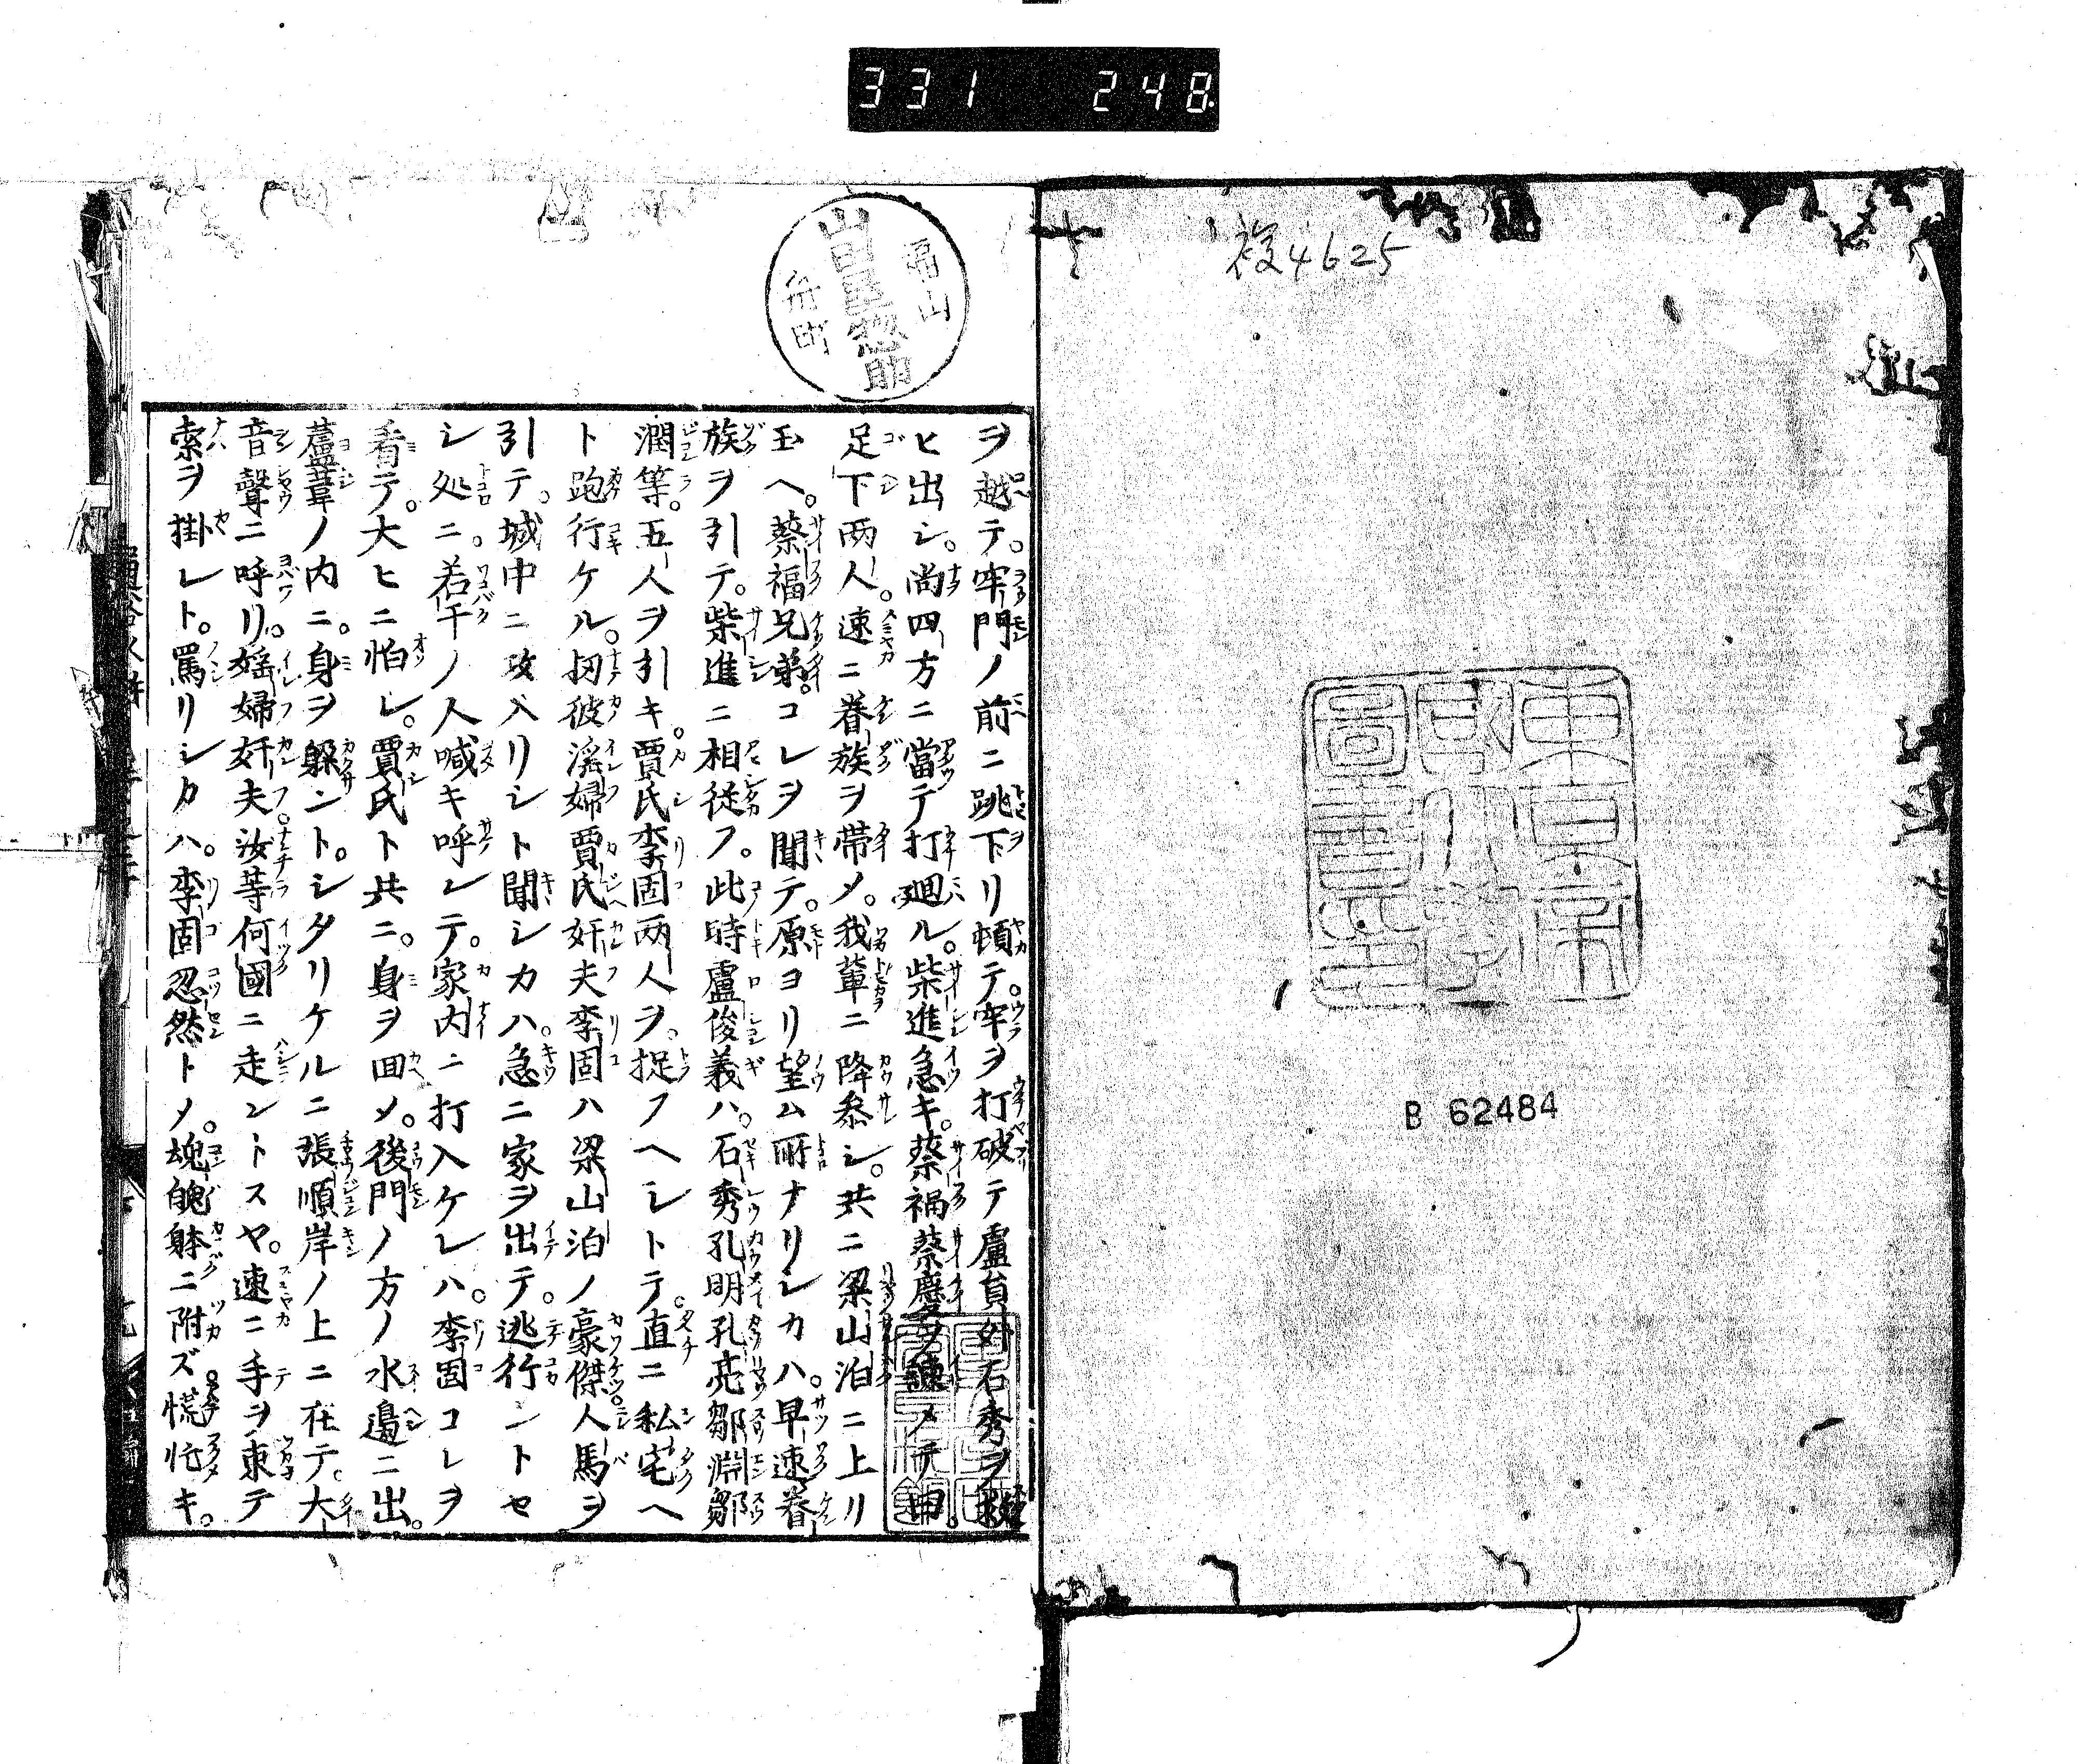 331 248
複4625
東京帝
國大學
圖書印
B 62484
福山
山田屋惣助
舟町
ヲ越テ。牢門ノ前ニ跳下リ頓テ。牢ヲ打破テ盧員外石秀ヲ救
ヒ出シ。尚四方ニ當テ打廻ル。柴進急キ。蔡福蔡慶ヲ諫メテ曰。
足下両人。速ニ眷族ヲ帯メ。我輩ニ降参シ。共ニ梁山泊ニ上リ
玉ヘ。蔡福兄弟。コレヲ聞テ。原ヨリ望ム所ナリシカハ。早速眷
族ヲ引テ。柴進ニ相従フ。此時盧俊義ハ。石秀孔明孔亮鄒淵鄒
潤等。五人ヲ引キ。賈氏李固両人ヲ。捉フヘシトテ。直ニ私宅ヘ
ト跑行ケル。扨彼淫婦賈氏奸夫李固ハ梁山泊ノ豪傑人馬ヲ
引テ。城中ニ攻入リシト聞シカハ。急ニ家ヲ出テ。逃行ントセ
シ処ニ。若干ノ人喊キ呼レテ。家内ニ打入ケレハ。李固コレヲ
看テ。大ヒニ怕レ。賈氏ト共ニ。身ヲ回メ。後門ノ方ノ水邉ニ出。
蘆葦ノ内ニ。身ヲ躱ント。シタリケルニ張順岸ノ上ニ在テ。大
音聲ニ呼リ。婬婦奸夫汝等何國ニ走ントスヤ。速ニ手ヲ束テ
索ヲ掛レト。罵リシカハ。李固忽然トメ。魂魄躰ニ附ズ慌忙キ。